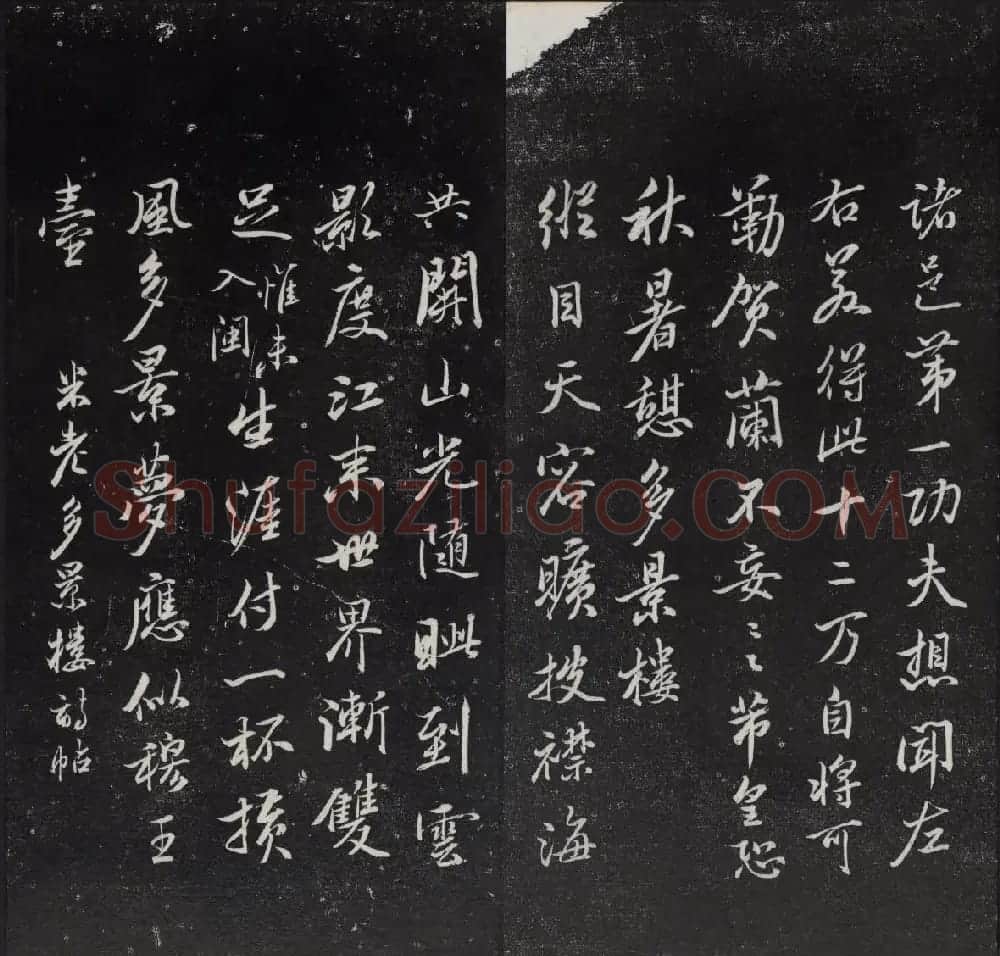 诸邑第一功夫想聞左
右若得此十二万自将可
勤賀蘭不妄〻芾皇恐
秋暑憩多景樓
縱目天容曠披襟海
共開山光随眦到雲
影度江来世界漸雙
足惟未入閩生涯付一杯横
風多景夢應似穆王
臺
米老多景樓詩帖
Shufaziliao.COM